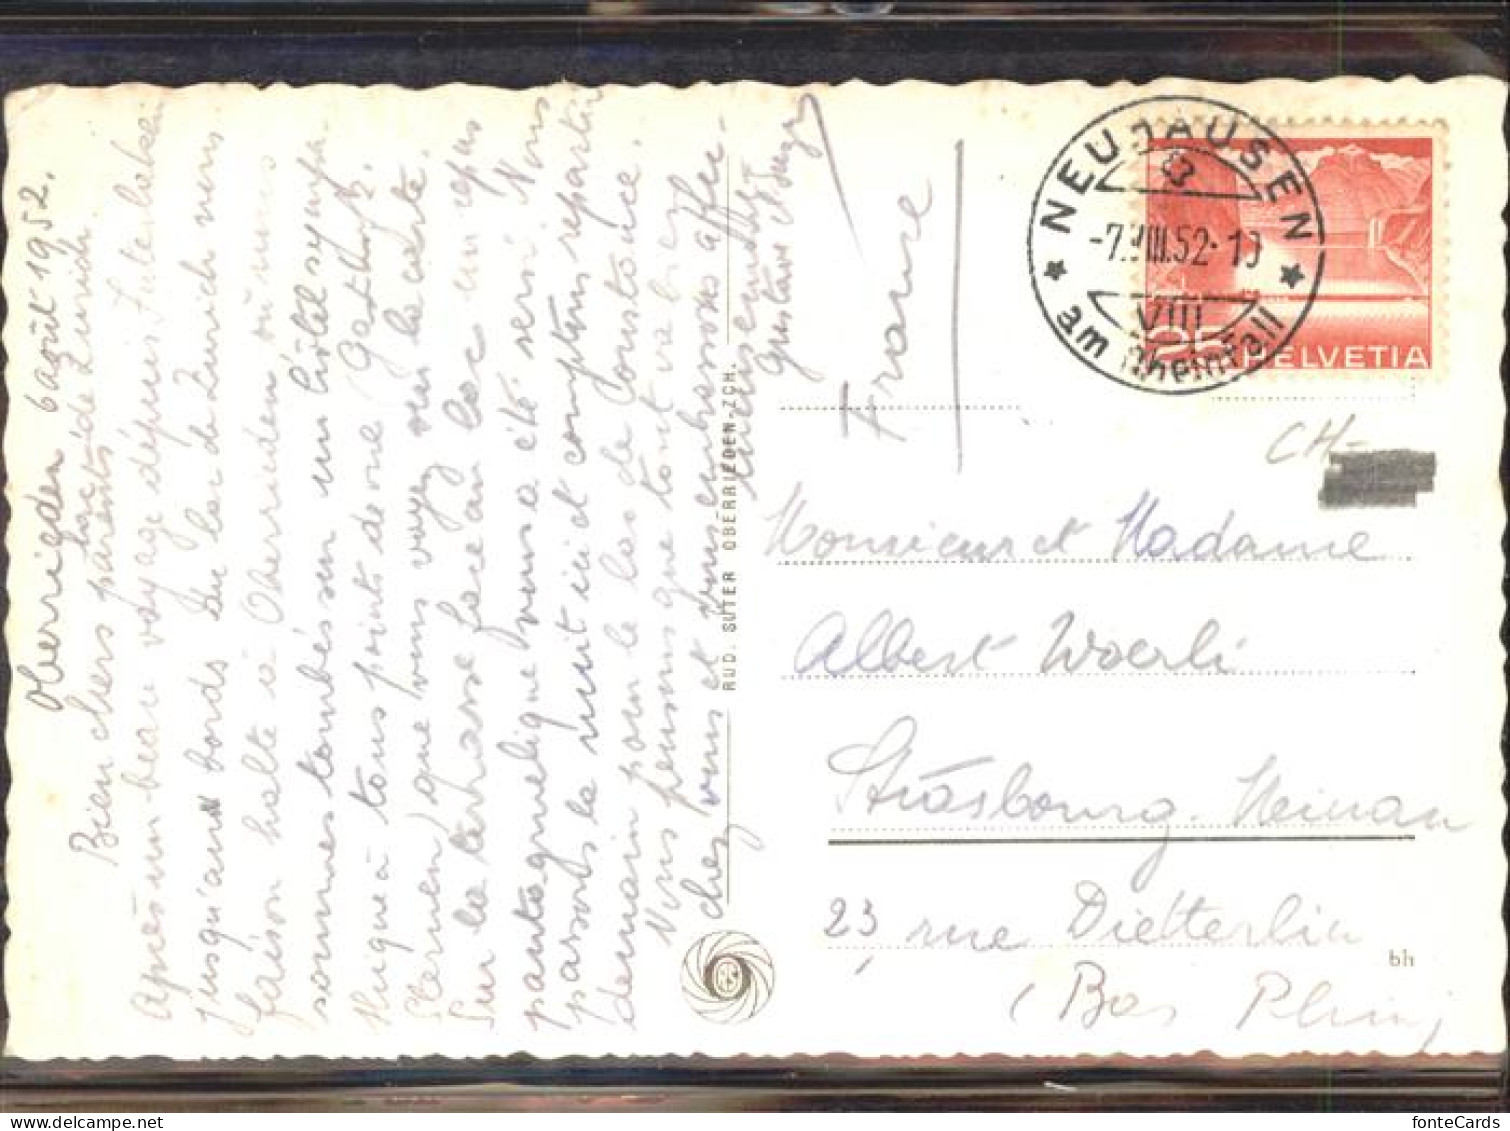 Oberrieden 6 août 1952.
lac de Zurich.
Bien chers parents
après un beau voyage depuis Interlaken
jusqu'aux bords du lac de Zurich nous
faison halte à Oberrieden où nous
sommes tombés sur un hôtel sympa
thique à tous points de vue
comme vous voyez sur la carte.
Sur la terrasse face au lac un repas
pantagruélique nous a été servi. Nous
passons la nuit ici et comptons repartir
demain pour le lac de Constance.
Nous pensons que tout va bien
chez vous et vous embrassons affec-
tueusement
Gustave et Suzy
RUD. SUTER OBERRIEDEN-ZCH.
France
NEUHAUSEN
-7.VIII.52.-10
VIII
am Rheinfall
25
HELVETIA
CH-
Monsieur et Madame
Albert Woerli
Strasbourg. Meinau
23, rue Dietterlin
(Bas Rhin)
bh
fonteCards